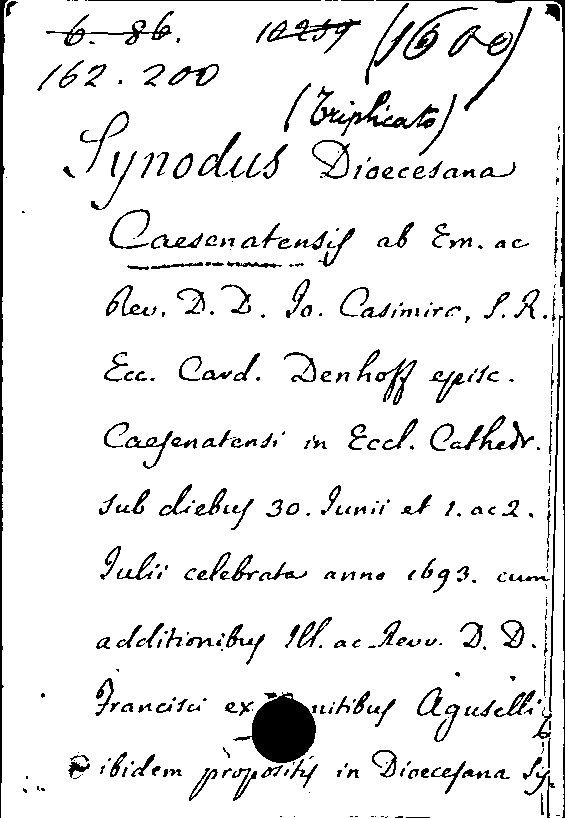 6. 86. 10259 (1600)
162. 200
(Triplicato)
Synodus Dioecesana
Caesenatensis ab Em. ac
Rev. D. D. Io. Casimiro, S. R.
Ecc. Card. Denhoff episc.
Caesenatensi in Eccl. Cathedr.
sub diebus 30. Iunii et 1. ac 2.
Iulii celebrata anno 1693. cum
additionibus Ill. ac Revv. D. D.
Francisci ex nitibus Aguselli
ibidem propositis in Dioecesana Sy-